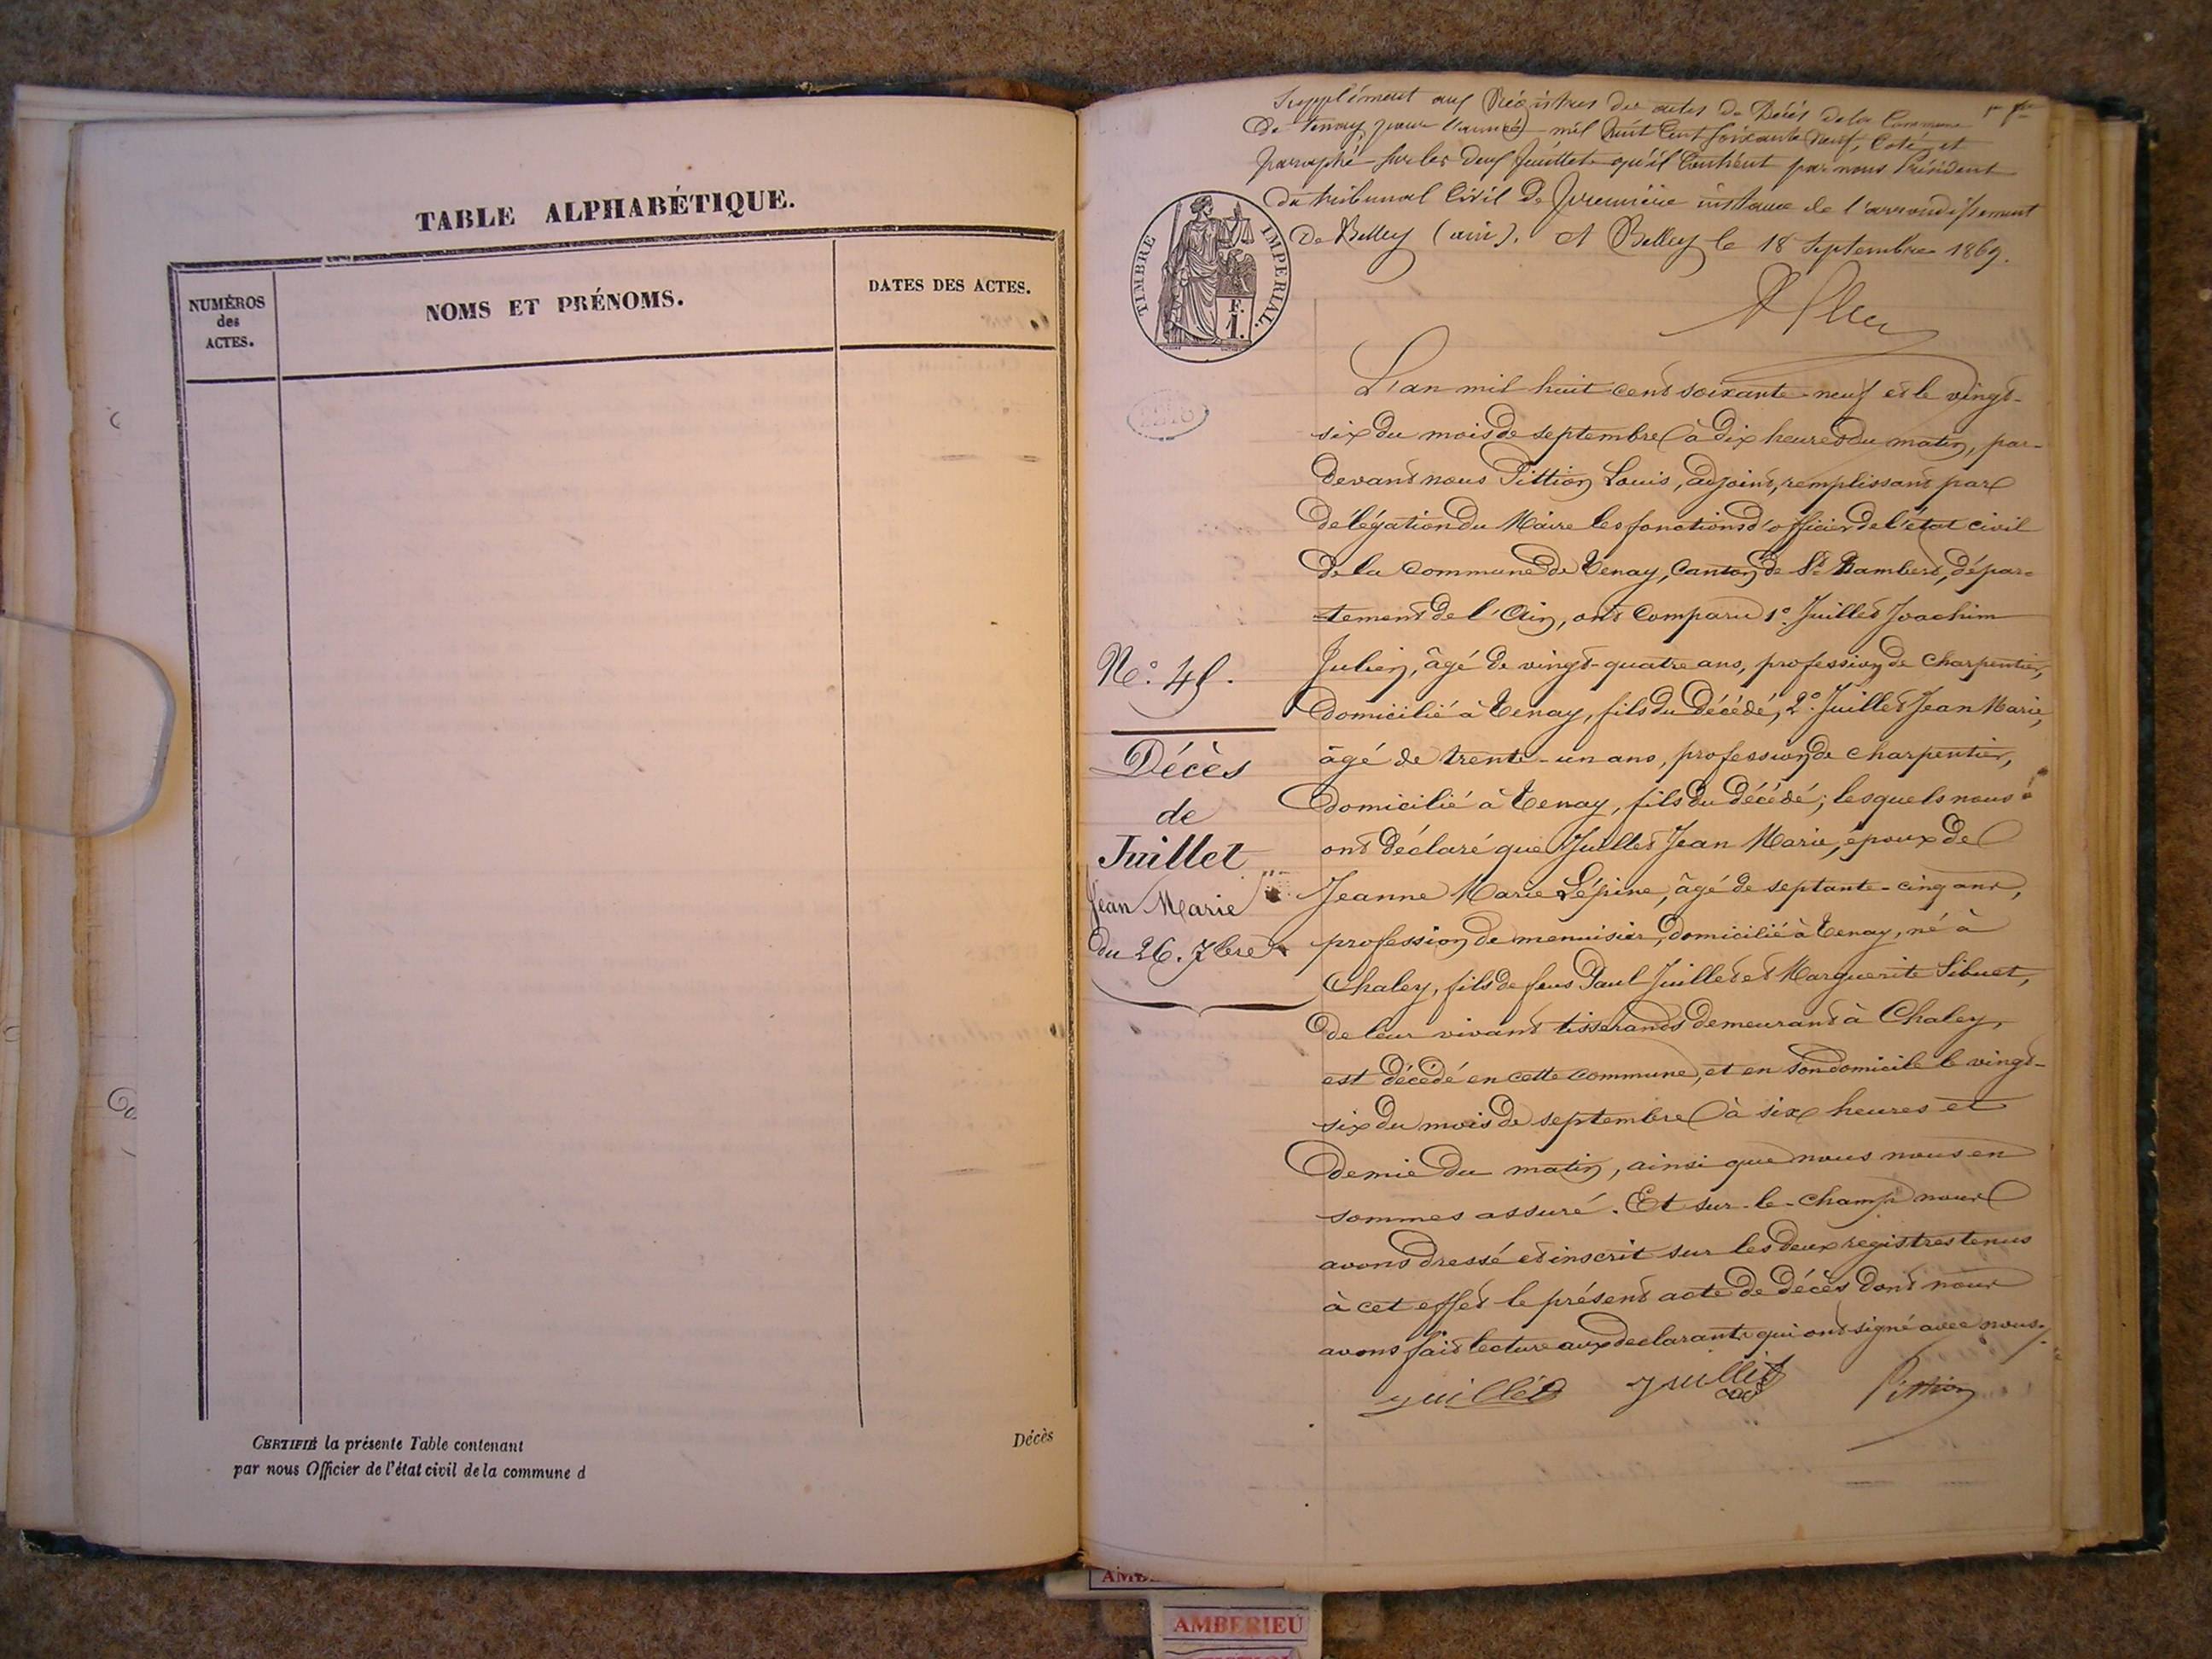 TABLE ALPHABÉTIQUE.
NUMÉROS
des
ACTES.
NOMS ET PRÉNOMS.
DATES DES ACTES.
CERTIFIÉ la présente Table contenant
par nous Officier de l'état civil de la commune d
Décès
Supplément aux Registres des actes de Décès de la Commune
de Tenay, pour l'année mil huit cent soixante neuf, Coté et
paraphé sur les deux feuillets qu'il contient par nous Président
du tribunal Civil de première instance de l'arrondissement
de Belley (ain). A Belley le 18 Septembre 1869.
TIMBRE IMPERIAL.
F.
1.
N°. 45.
Décès
de
Juillet
Jean Marie
du 26. 7bre
L'an mil huit cent soixante-neuf et le vingt-
six du mois de septembre à dix heures du matin, par-
devant nous Pittion Louis, adjoint, remplissant par
délégation du Maire les fonctions d'officier de l'état civil
de la commune de Tenay, Canton de St Rambert, dépar-
tement de l'Ain, ont comparu 1°. Juillet Joachim
Julien, âgé de vingt-quatre ans, profession de charpentier,
domicilié à Tenay, fils du décédé, 2°. Juillet Jean Marie,
âgé de trente-un ans, profession de charpentier,
domicilié à Tenay, fils du décédé; lesquels nous
ont déclaré que Juillet Jean Marie, époux de
Jeanne Marie Lépine, âgé de septante-cinq ans,
profession de menuisier, domicilié à Tenay, né à
Chaley, fils de feus Paul Juillet et Marguerite Sibuet,
de leur vivant tisserands demeurant à Chaley,
est décédé en cette commune, et en son domicile le vingt-
six du mois de septembre à six heures et
demie du matin, ainsi que nous nous en
sommes assuré. Et sur-le-champ nous
avons dressé et inscrit sur les deux registres tenus
à cet effet le présent acte de décès dont nous
avons fait lecture aux declarants qui ont signé avec nous.
juillet juillet Pittion
AMBERIEU